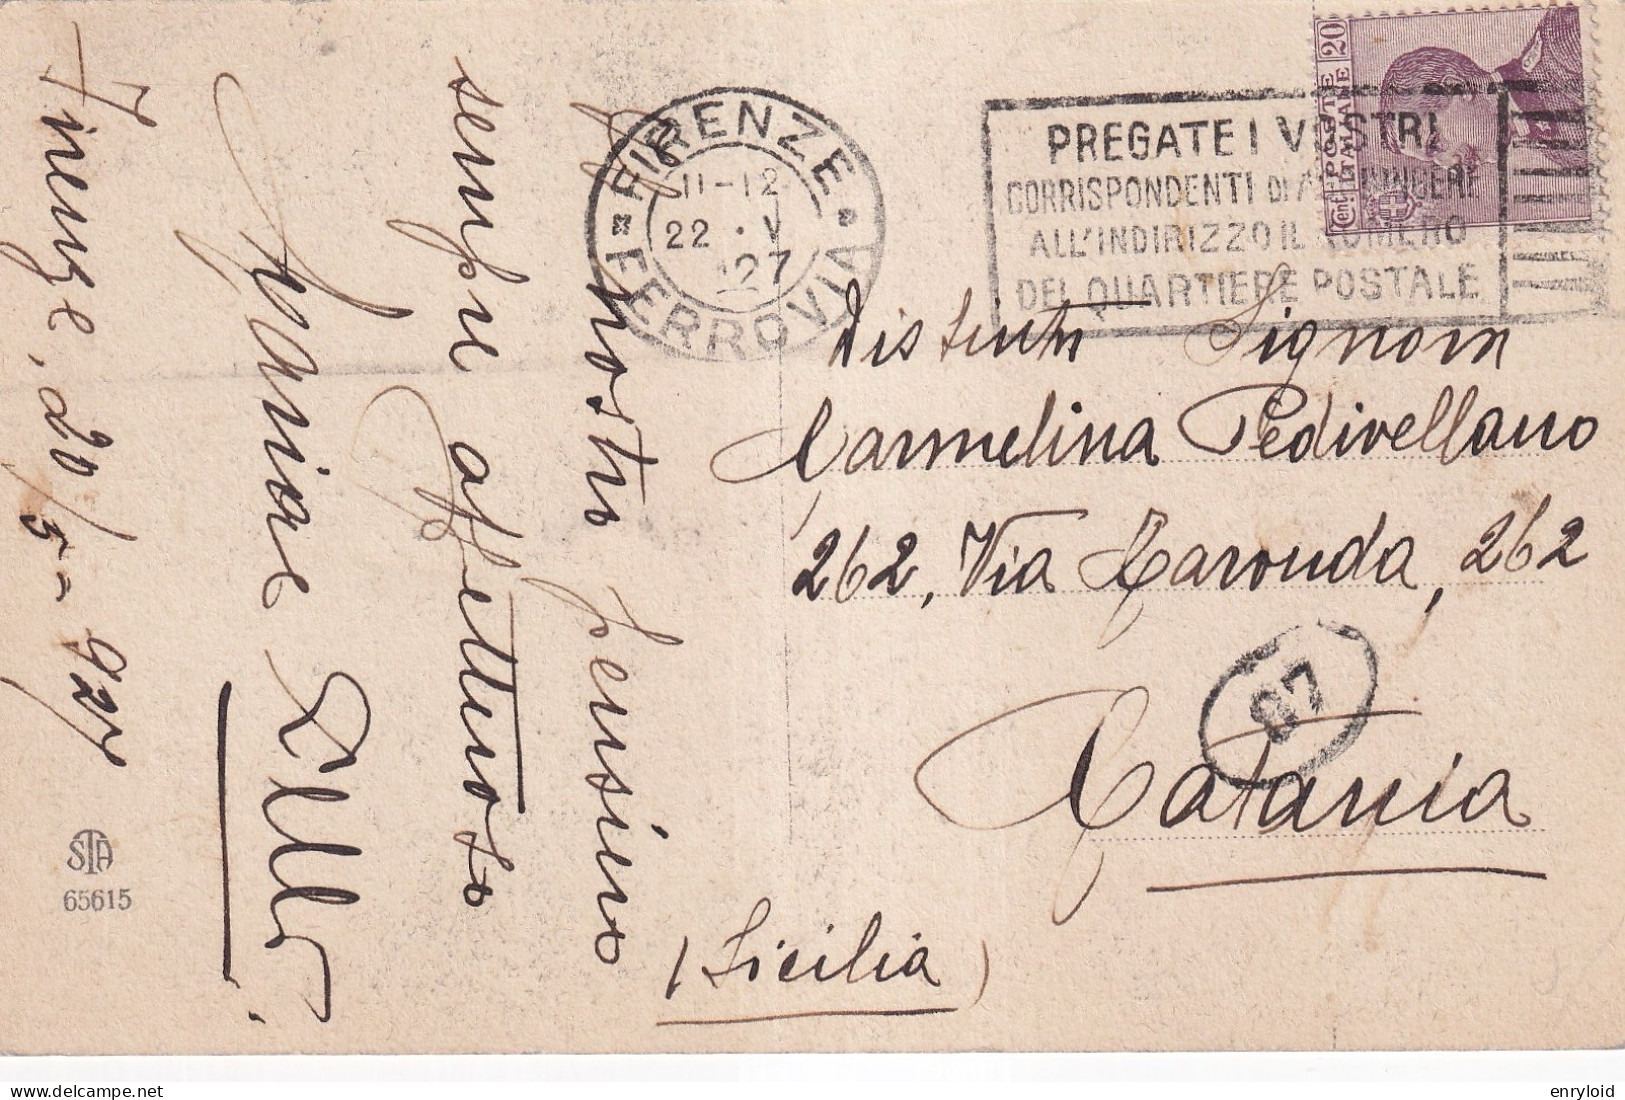 Firenze, 20/5-927
Il nostro pensiero
sempre affettuoso
FIRENZE
11-12
22 . V
27
FERROVIA
PREGATE I VOSTRI
CORRISPONDENTI DI AGGIUNGERE
ALL'INDIRIZZO IL NUMERO
DEL QUARTIERE POSTALE
Cent. 20
POSTE
ITALIANE
Carmelina Pedivellano
262, Via Caronda, 262
87
Catania
(Sicilia)
STA
65615
delcampe.net
enryloid